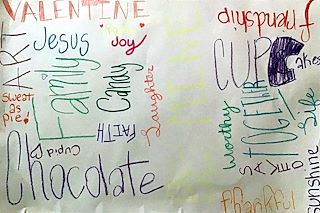 VALENTINE
friendship
ART
Jesus
Joy
Family
Candy
Laughter
Sweat as pie!
FAITH
Cupid
Chocolate
CUPCakes
worthy
TOGETHER
Life
Thankful
sunshine